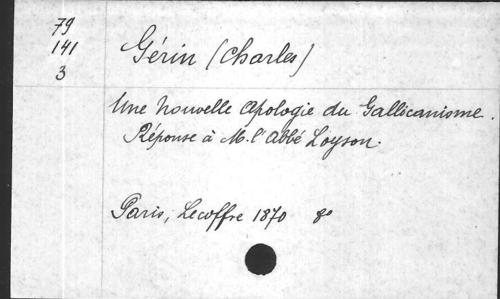 79
141
3
Gérin (Charles)
Une nouvelle Apologie du Gallicanisme.
Réponse à M. l'abbé Loyson.
Paris, Lecoffre 1870 8º